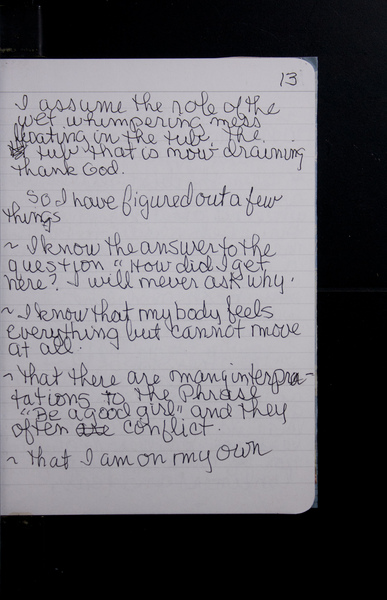 13
I assume the role of the
wet whimpering mess
floating in the tub. The
tub that is now draining
thank God.
So I have figured out a few
things
~ I know the answer to the
question "How did I get
here? I will never ask why.
~ I know that my body feels
everything but cannot move
at all.
~ that there are many interpra-
tations to the phrase
"Be a good girl" and they
often are conflict.
~ that I am on my own